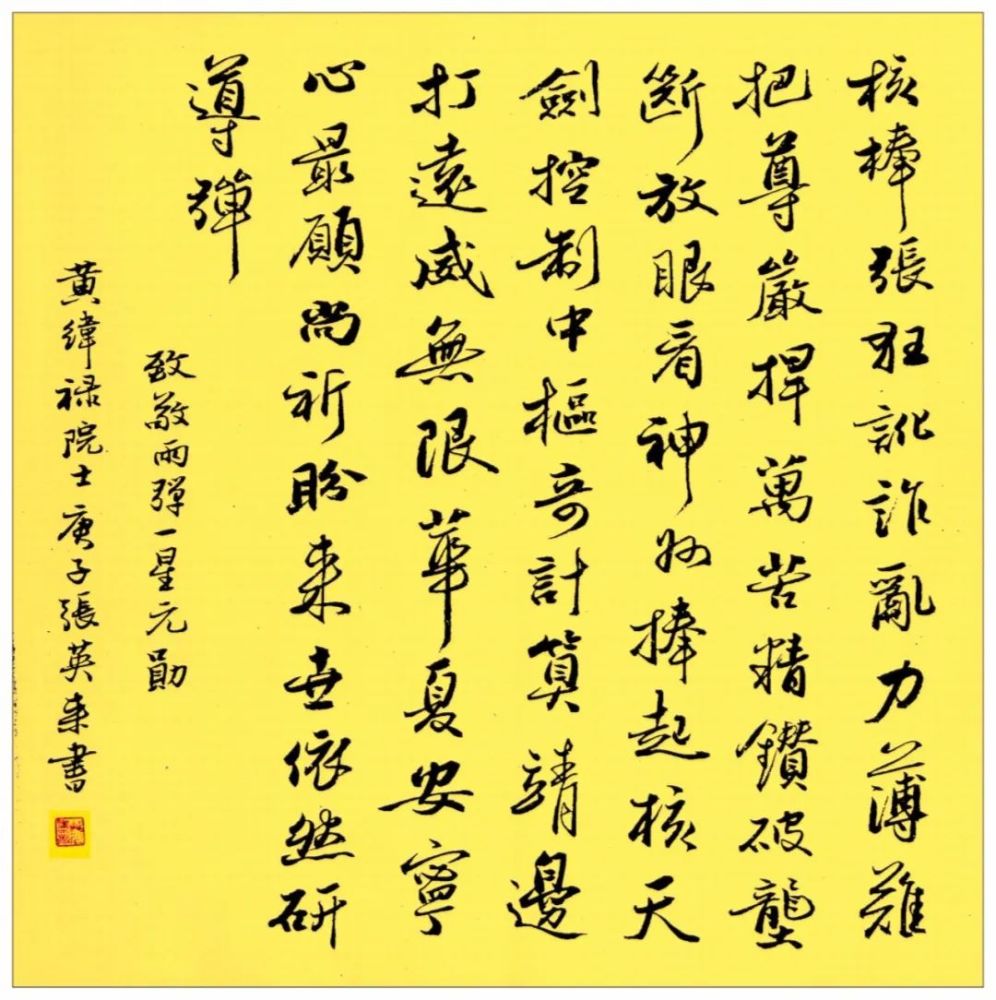 核棒張狂訛詐亂力薄難
把尊嚴捍萬苦精鑽破壟
斷放眼看神州捧起核天
劍控制中樞奇計算靖邊
打遠威無限華夏安寧
心最願尚祈盼来世依然研
導彈
致敬兩彈一星元勛
黃緯禄院士庚子張英来書